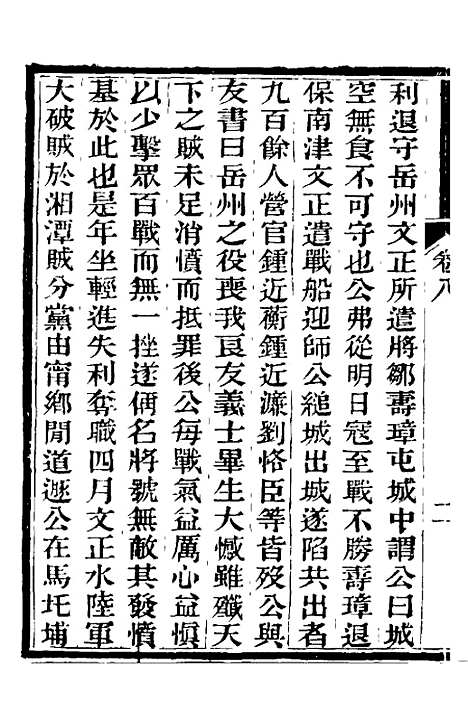 卷八
二
利退守岳州文正所遣將鄒壽璋屯城中謂公曰城
空無食不可守也公弗從明日寇至戰不勝壽璋退
保南津文正遣戰船迎師公縋城出城遂陷共出者
九百餘人營官鍾近蘅鍾近濂劉恪臣等皆歿公與
友書曰岳州之役喪我良友義士畢生大憾雖殲天
下之賊未足消憤而抵罪後公每戰氣益厲心益慎
以少擊眾百戰而無一挫遂偁名將號無敵其發憤
基於此也是年坐輕進失利奪職四月文正水陸軍
大破賊於湘潭賊分黨由甯鄉閒道遯公在馬圫埔